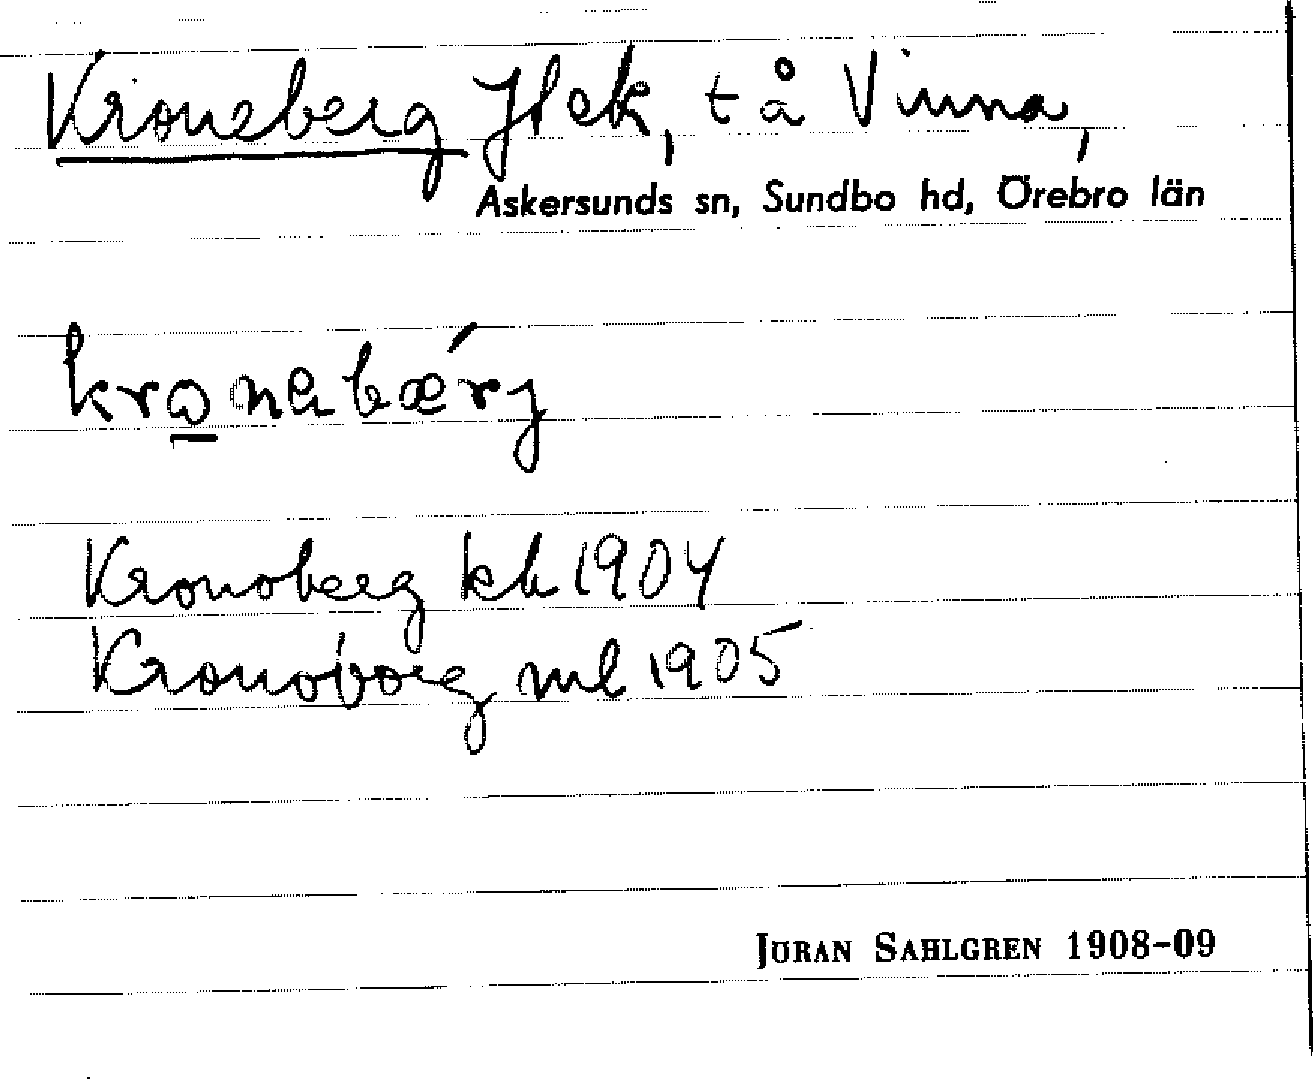 Kroneberg Hek, t å Vinna,
Askersunds sn, Sundbo hd, Örebro län
kronabærj
Kronoberg kb 1904
Kronoborg ml 1905
JÖRAN SAHLGREN 1908-09